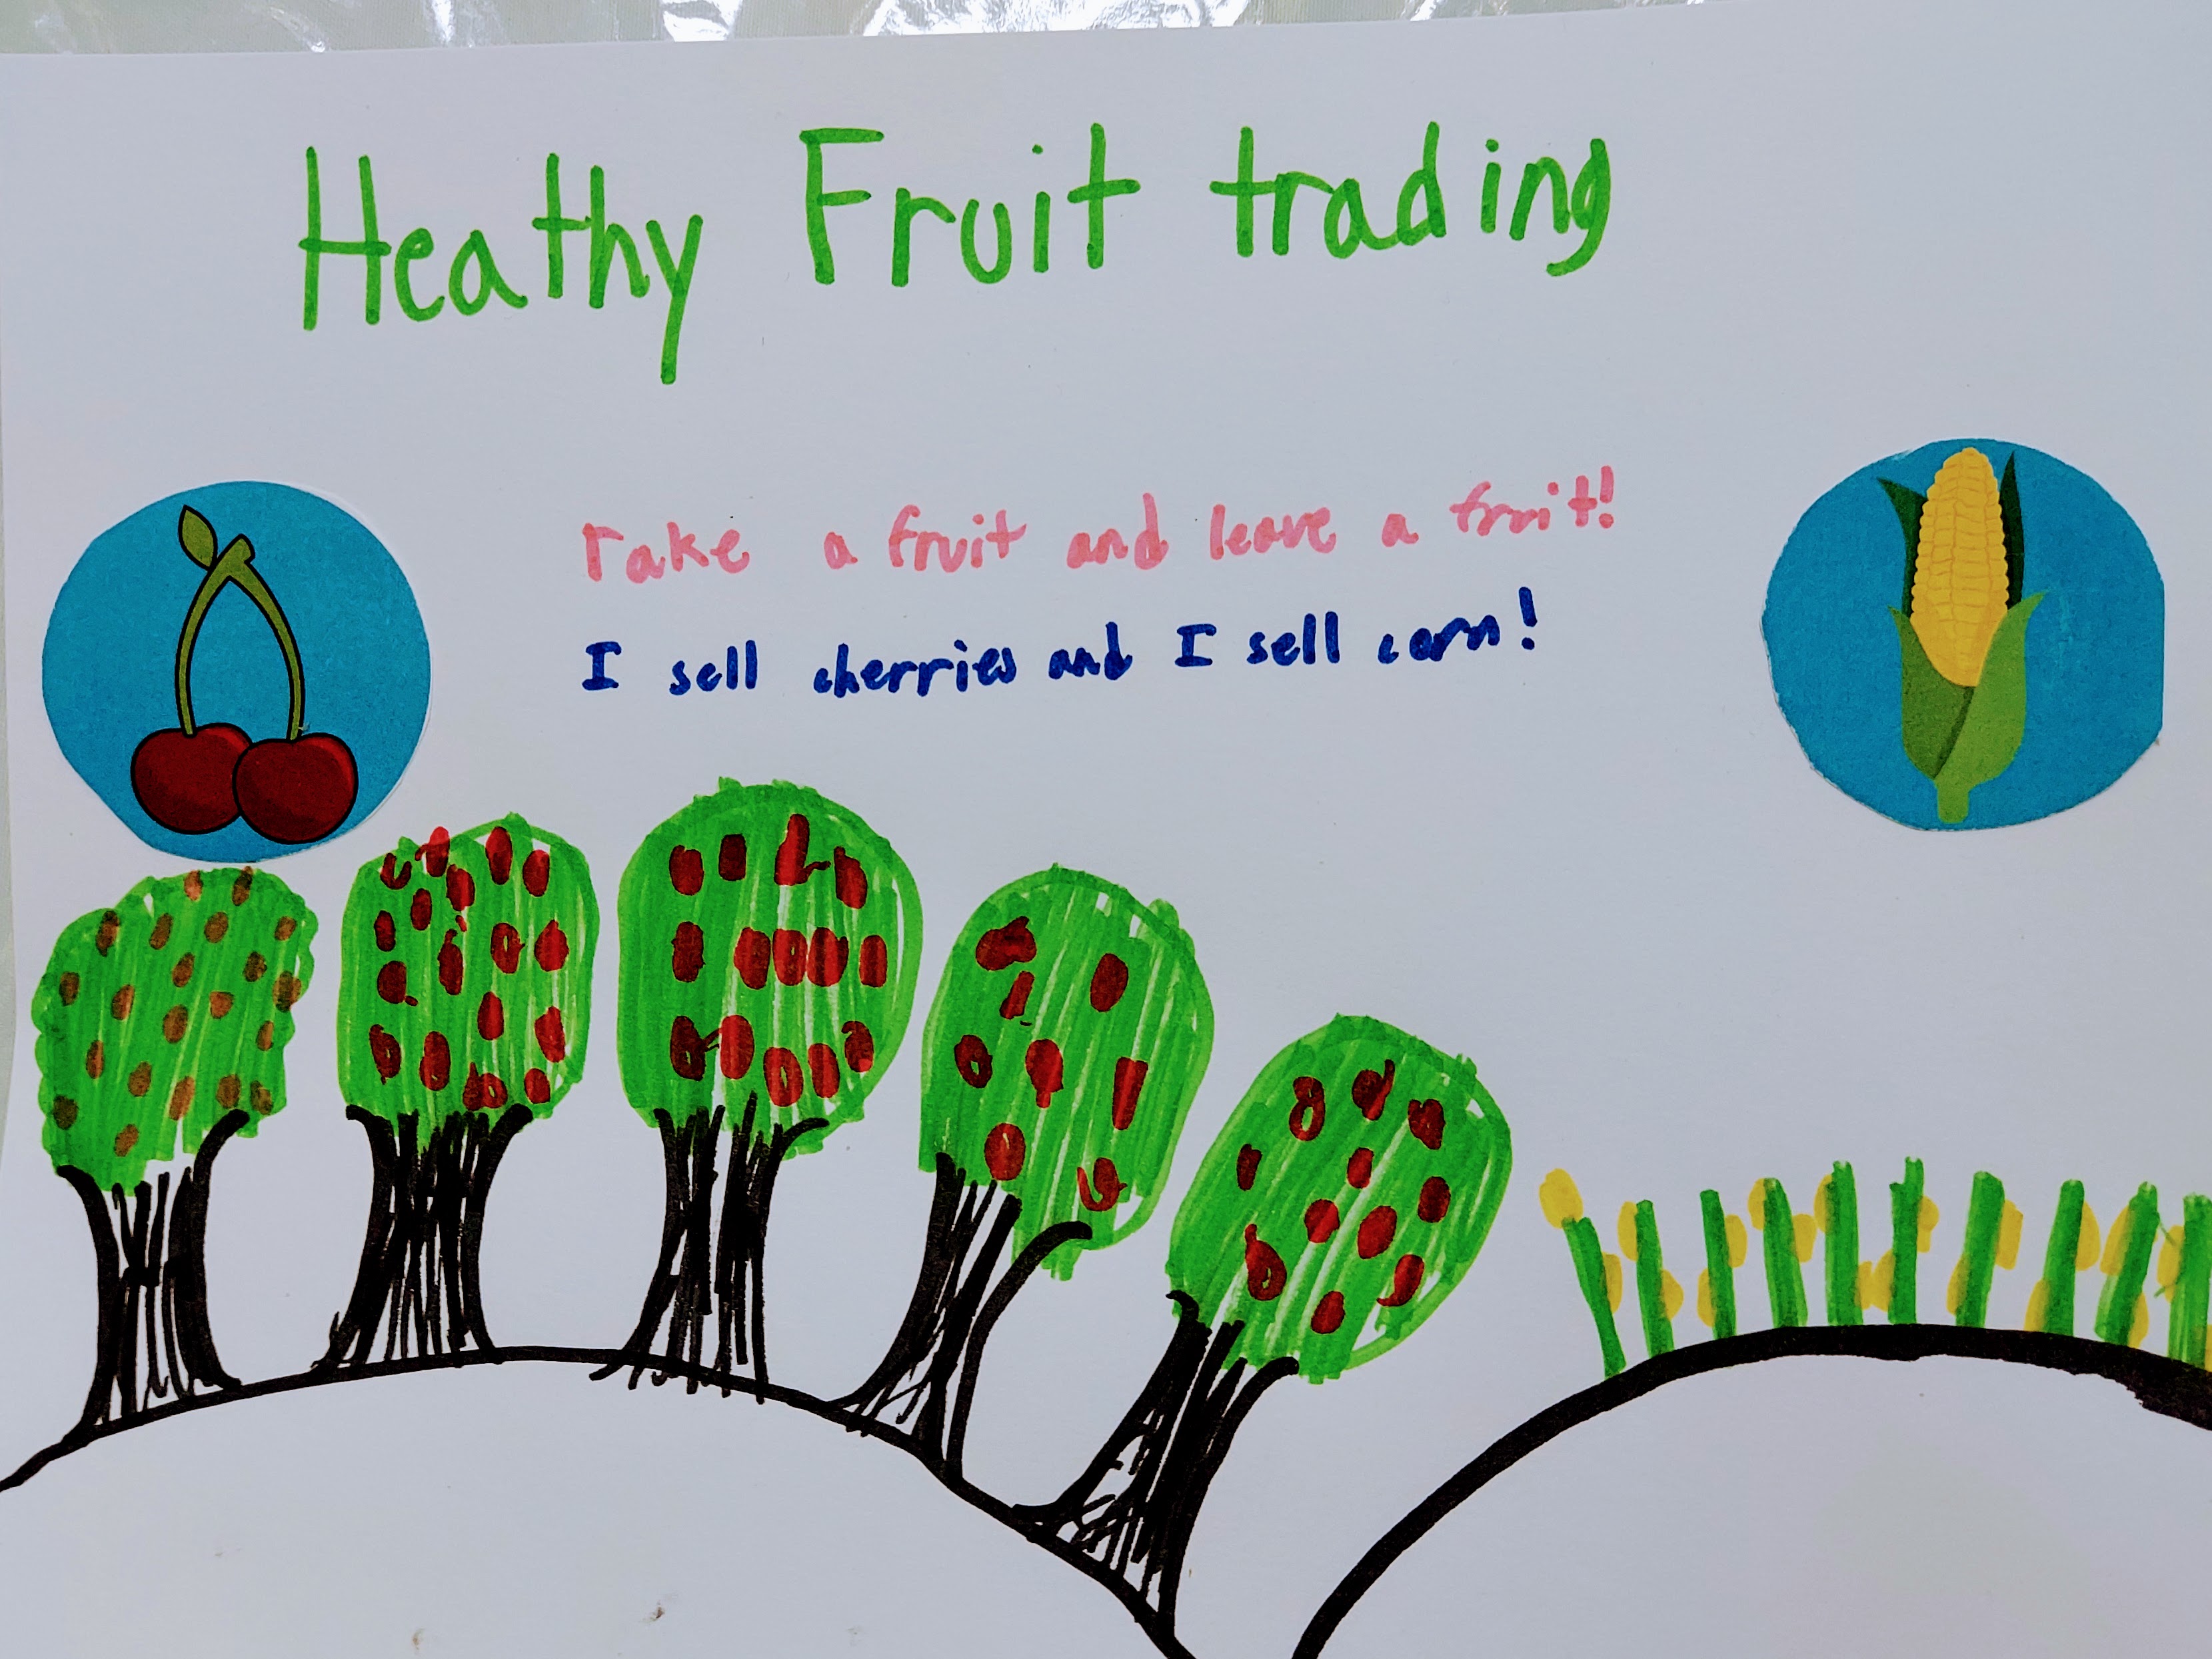 Heathy Fruit trading
Take a fruit and leave a fruit!
I sell cherries and I sell corn!